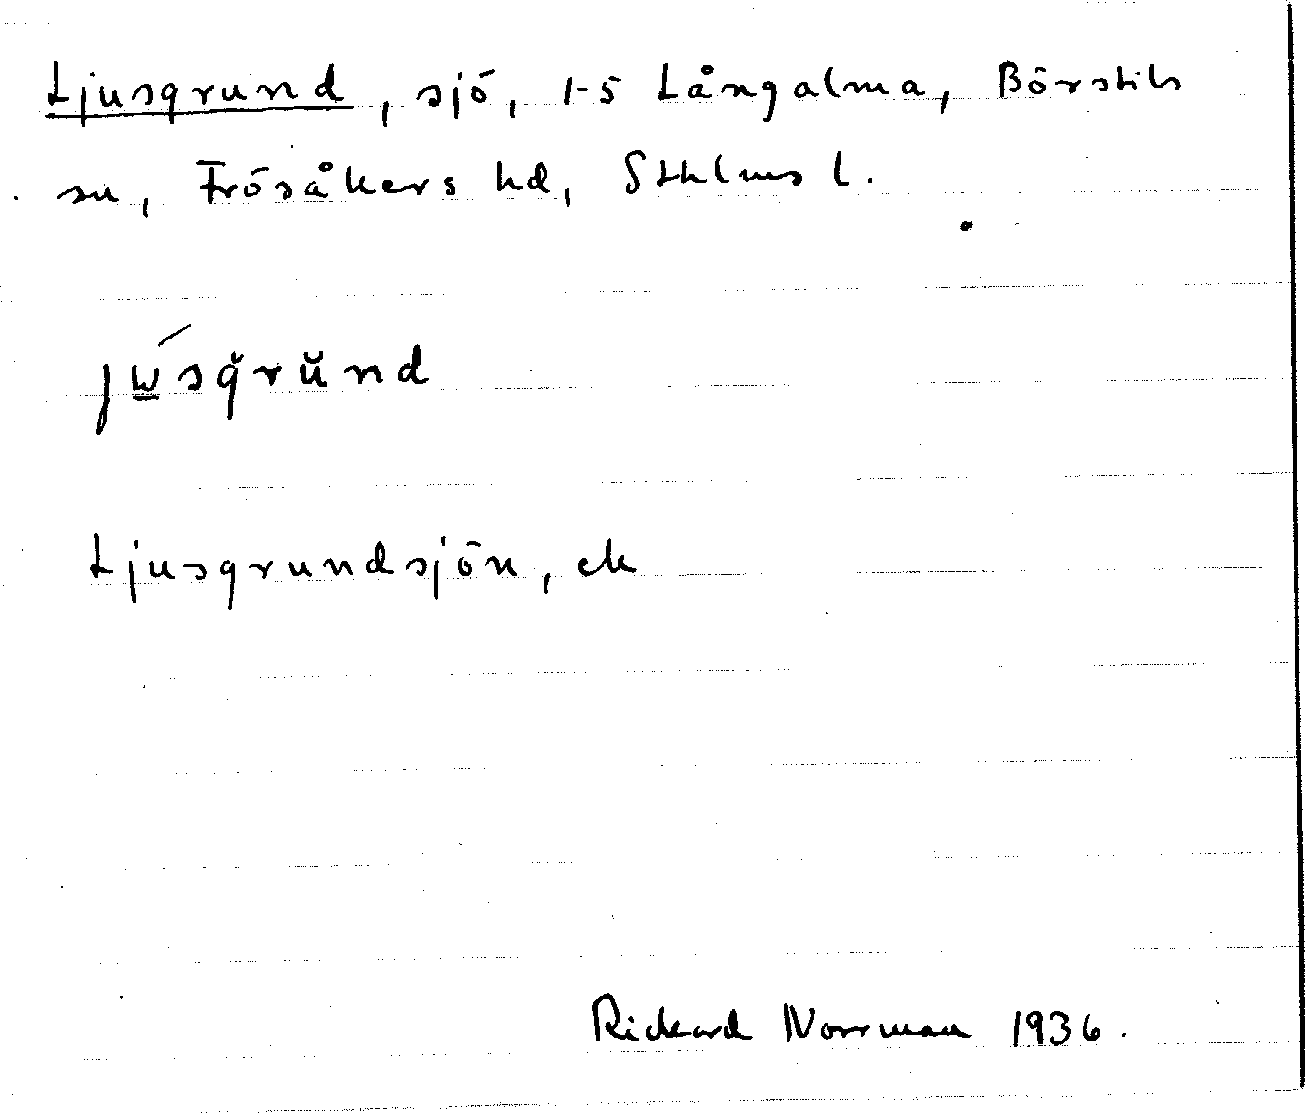 Ljusgrund, sjö, 1-5 Långalma, Börstils
sn, Frösåkers hd, Sthlms l.
jɯ́sgrŭnd
Ljusgrundsjön, ek
Rickard Norrman 1936.